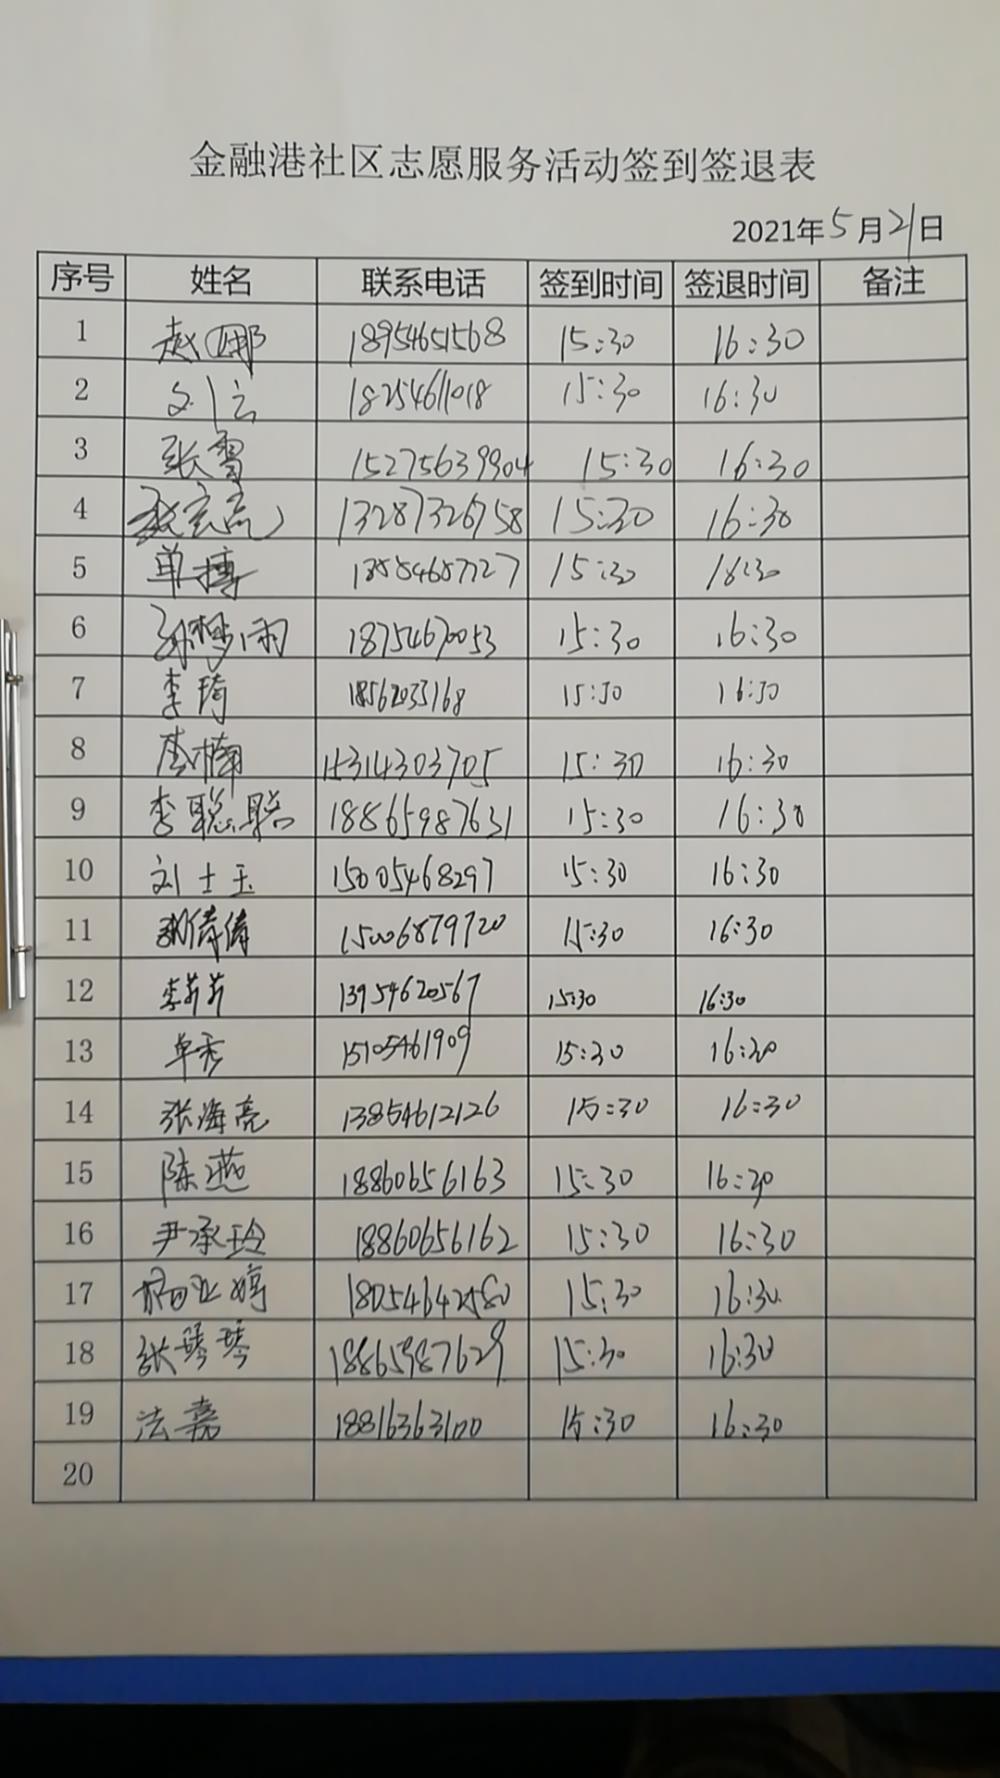 金融港社区志愿服务活动签到签退表
2021年5月21日
序号 姓名 联系电话 签到时间 签退时间 备注
1 赵娜 18954651568 15:30 16:30
2 刘云 18254611018 15:30 16:30
3 张雪 15275639904 15:30 16:30
4 13287326758 15:30 16:30
5 单博 13854687727 15:30 16:30
6 孙梦雨 18754670053 15:30 16:30
7 李琦 18562035168 15:30 16:30
8 李楠 15314303705 15:30 16:30
9 李聪聪 18865987631 15:30 16:30
10 刘士玉 15005468297 15:30 16:30
11 15006879720 15:30 16:30
12 李芹芹 13954620567 15:30 16:30
13 单秀 15105461909 15:30 16:30
14 张海亮 13854612126 15:30 16:30
15 陈燕 18860656163 15:30 16:30
16 尹承玲 18860656162 15:30 16:30
17 18054642580 15:30 16:30
18 张琴琴 18865987629 15:30 16:30
19 法嘉 18816363100 15:30 16:30
20